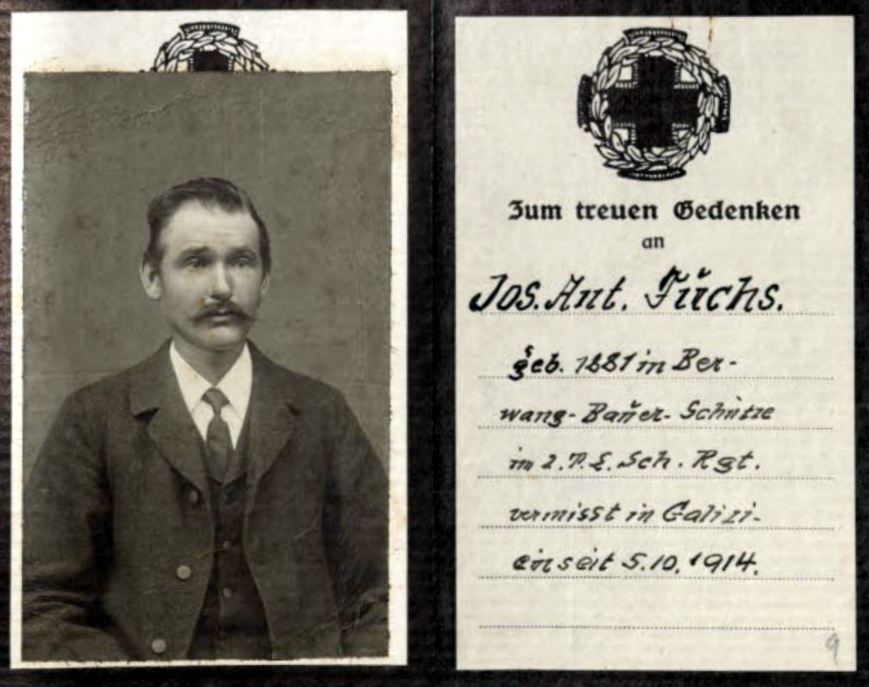 Zum treuen Gedenken
an
Jos. Ant. Fuchs.
geb. 1881 in Ber-
wang- Bauer- Schütze
im 2. T. L. Sch. Rgt.
vermisst in Galizi-
en seit 5.10.1914.
9